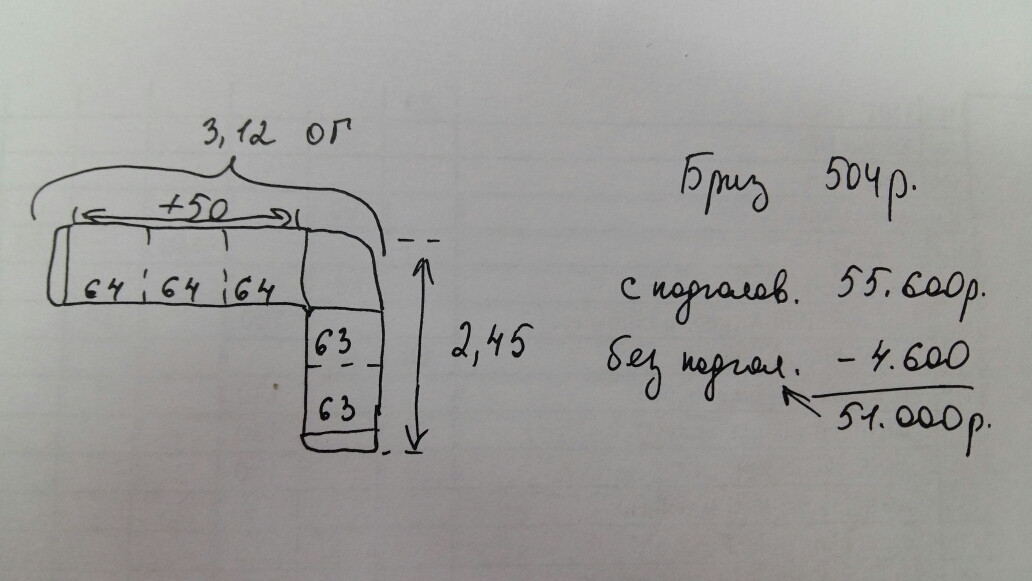 3,12 ОГ
+50
64 64 64
63
63
2,45
Бриз 504р.
с подголов. 55.600р.
без подгол. - 4.600
51.000р.